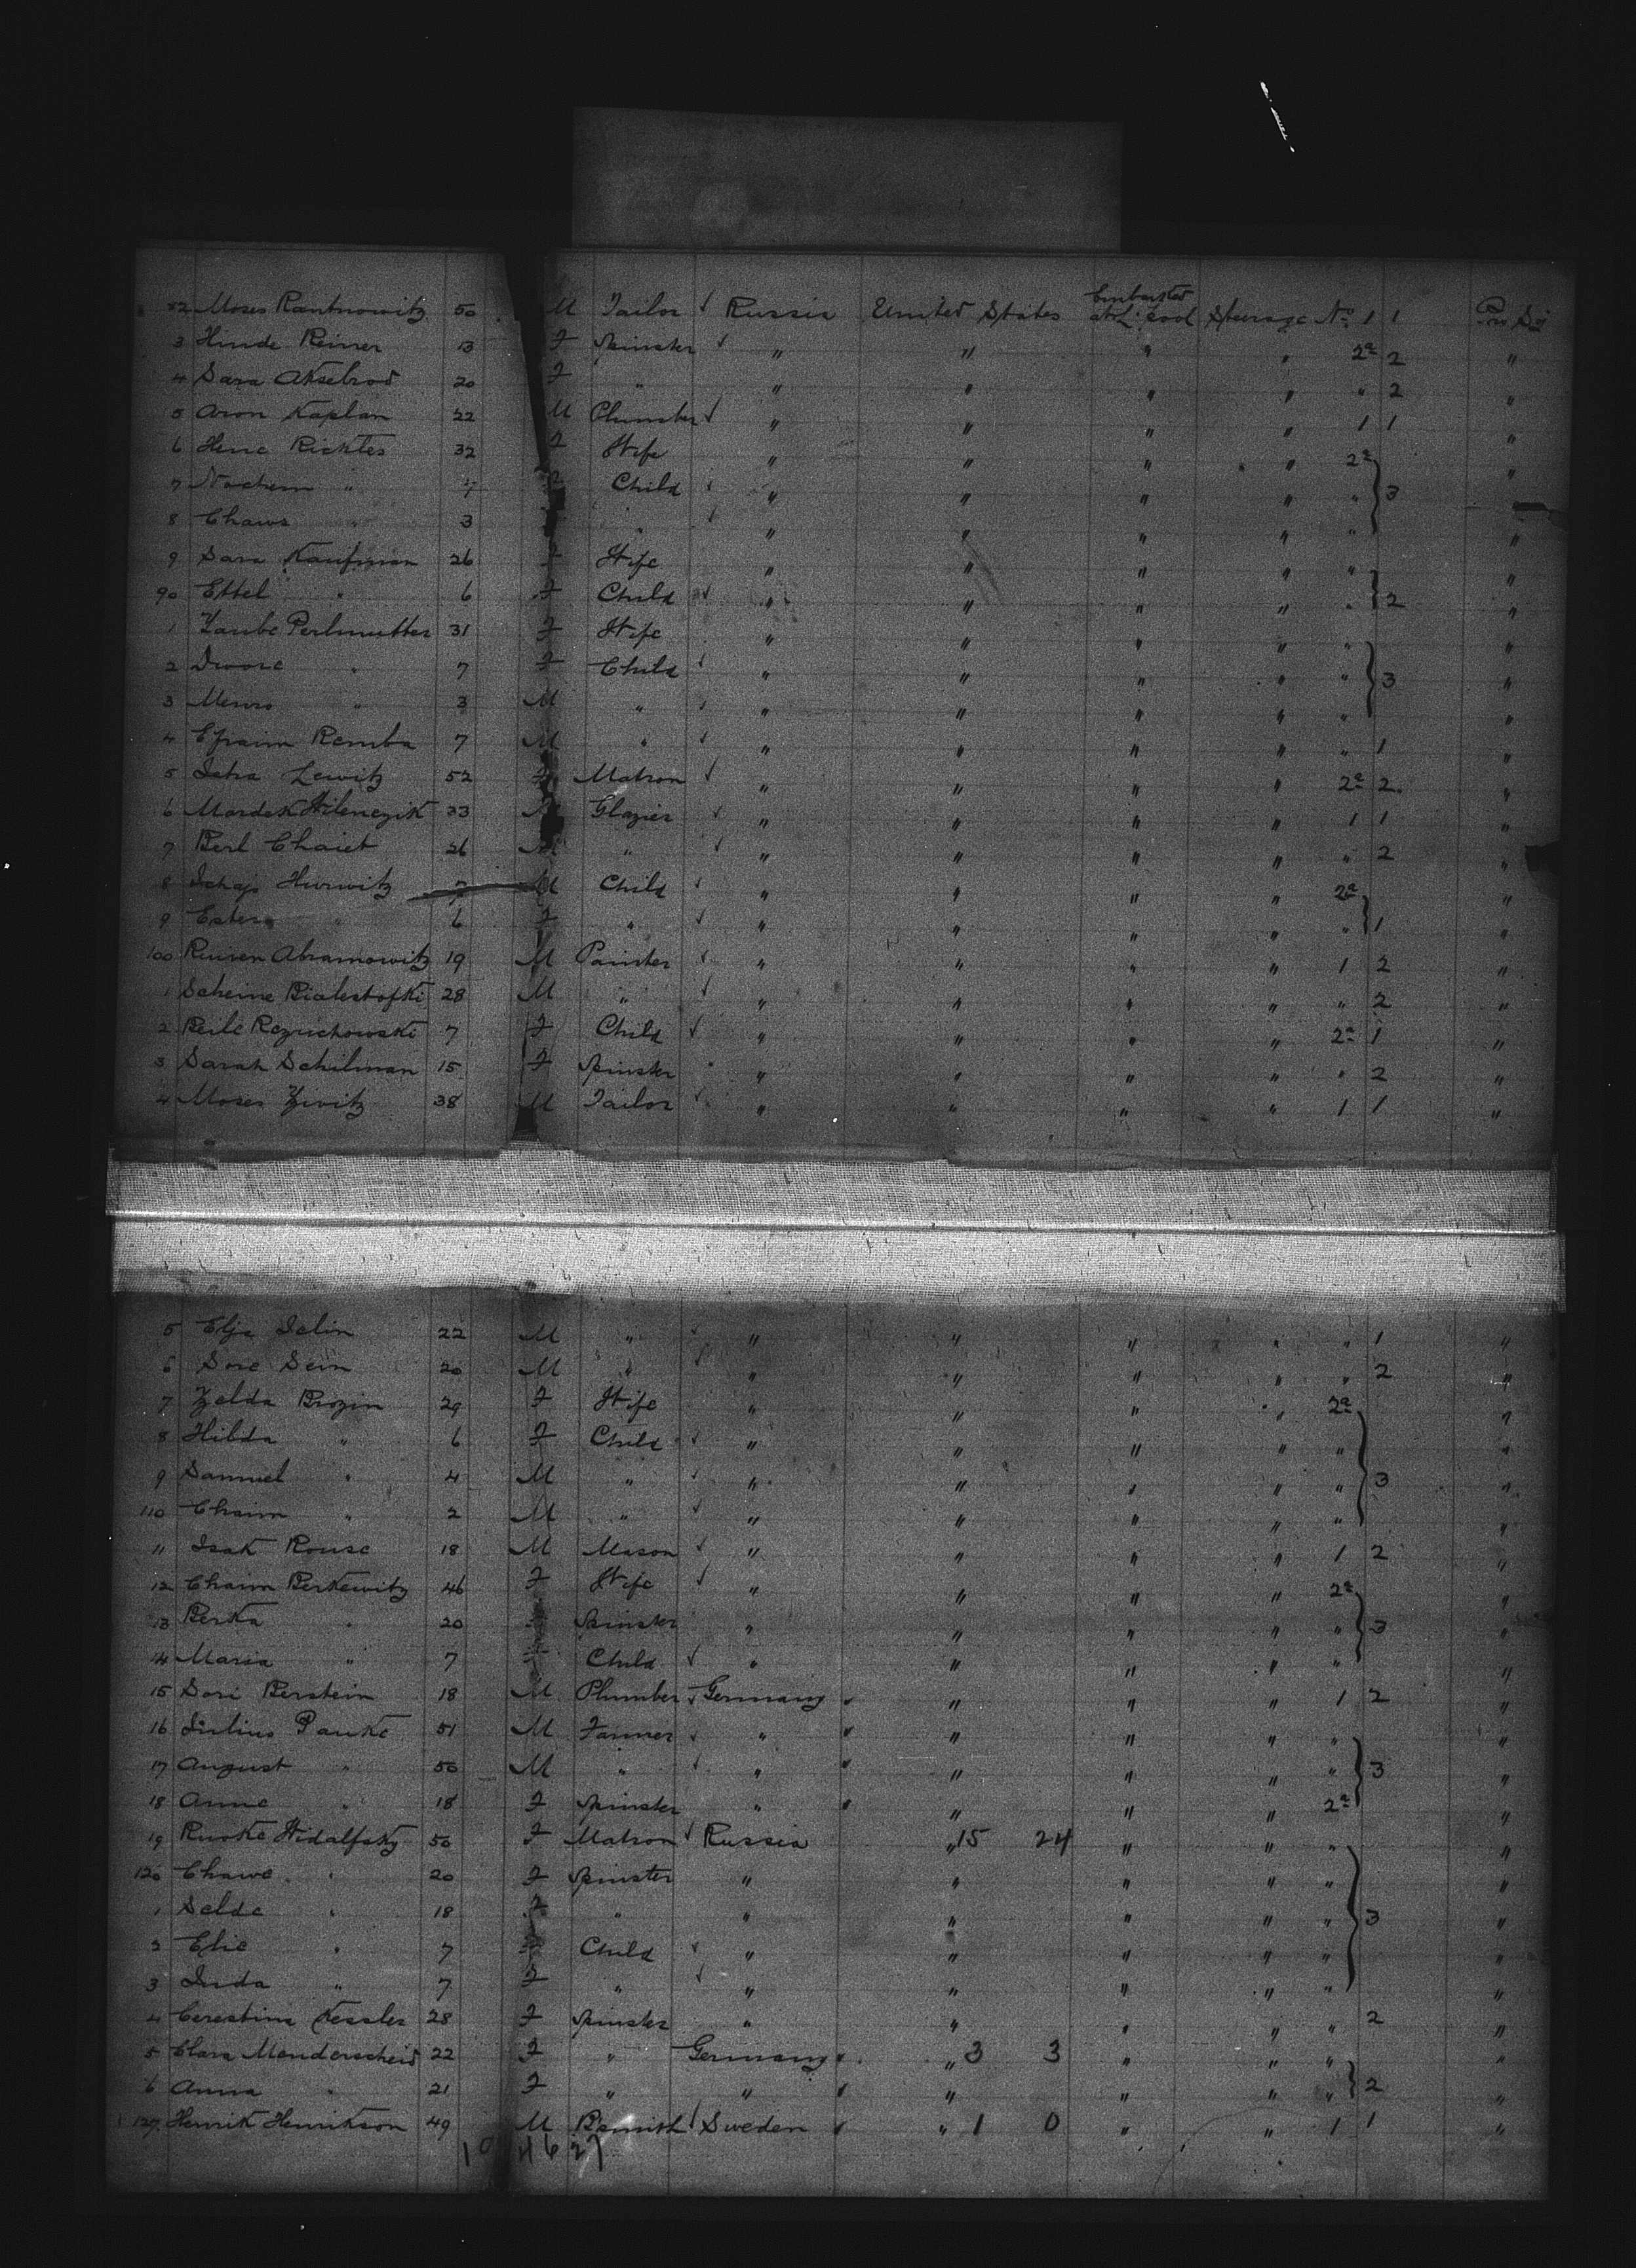 82 Moses Rantnowitz 50 M Tailor Russia United States Embarked at L'pool Steerage No 1 1
3 Hinde Reiner 13 F Spinster " " " " 2a 2 "
4 Sara Akselrod 20 F " " " " " " 2 "
5 Aron Kaplan 22 M Plumber " " " " 1 1 "
6 Hene Rickles 32 F Wife " " " " 2a "
7 Nochem " 7 Child " " " " " 3
8 Chawe " 3 " " " " " " "
9 Sara Kaufman 26 F Wife " " " " " "
90 Ettel " 6 F Child " " " " " 2 "
1 Taube Perlmutter 31 F Wife " " " " " "
2 Dwore " 7 F Child " " " " " 3 "
3 " 3 M " " " " " " "
4 Efraim Remba 7 M " " " " " " 1 "
5 Lewitz 52 F Matron " " " " 2a 2 "
6 Mordsk Wilenczik 33 M Glazier " " " " 1 1 "
7 Berl Chaiet 26 M " " " " " " 2 "
8 Hurwitz 7 M Child " " " " 2a "
9 Ester " 6 F " " " " " " 1 "
100 Reuven Abramowitz 19 M Painter " " " " 1 2 "
1 Scheine Bialestofki 28 M " " " " " " 2 "
2 Beile 7 F Child " " " " 2a 1 "
3 Sarah Schilman 15 F Spinster " " " " " 2 "
4 Moses Zivitz 38 M Tailor " " " " 1 1 "
5 Elje Iclin 22 M " " " " " " 1 "
6 Sore Sein 20 M " " " " " " 2 "
7 Zelda Brozin 29 F Wife " " " " 2a "
8 Hilda " 6 F Child " " " " " "
9 Samuel " 4 M " " " " " " 3 "
110 Chaim " 2 M " " " " " " "
11 Isak Rouse 18 M Mason " " " " 1 2 "
12 Chaim Berkewitz 46 F Wife " " " " 2a "
13 Berka " 20 Spinster " " " " " 3 "
14 Maria " 7 Child " " " " " "
15 Dori Berstein 18 M Plumber Germany " " " 1 2 "
16 Julius Pauke 51 M Farmer " " " " " "
17 August " 50 M " " " " " " 3 "
18 Anne " 18 F Spinster " " " " 2a "
19 Ruske Widalfsky 50 F Matron Russia " 15 24 " " " "
120 Chawe " 20 F Spinster " " " " " "
1 Selde " 18 F " " " " " " 3 "
2 Elie " 7 F Child " " " " " "
3 Juda " 7 F " " " " " " "
4 Cerestina Kessler 28 F Spinster " " " " " 2 "
5 Clara Menderscheid 22 F " Germany " 3 3 " " " "
6 Anna " 21 F " " " " " " 2 "
127 Henrik Henrikson 49 M Sweden " 1 0 " " 1 1 "
10 46 27